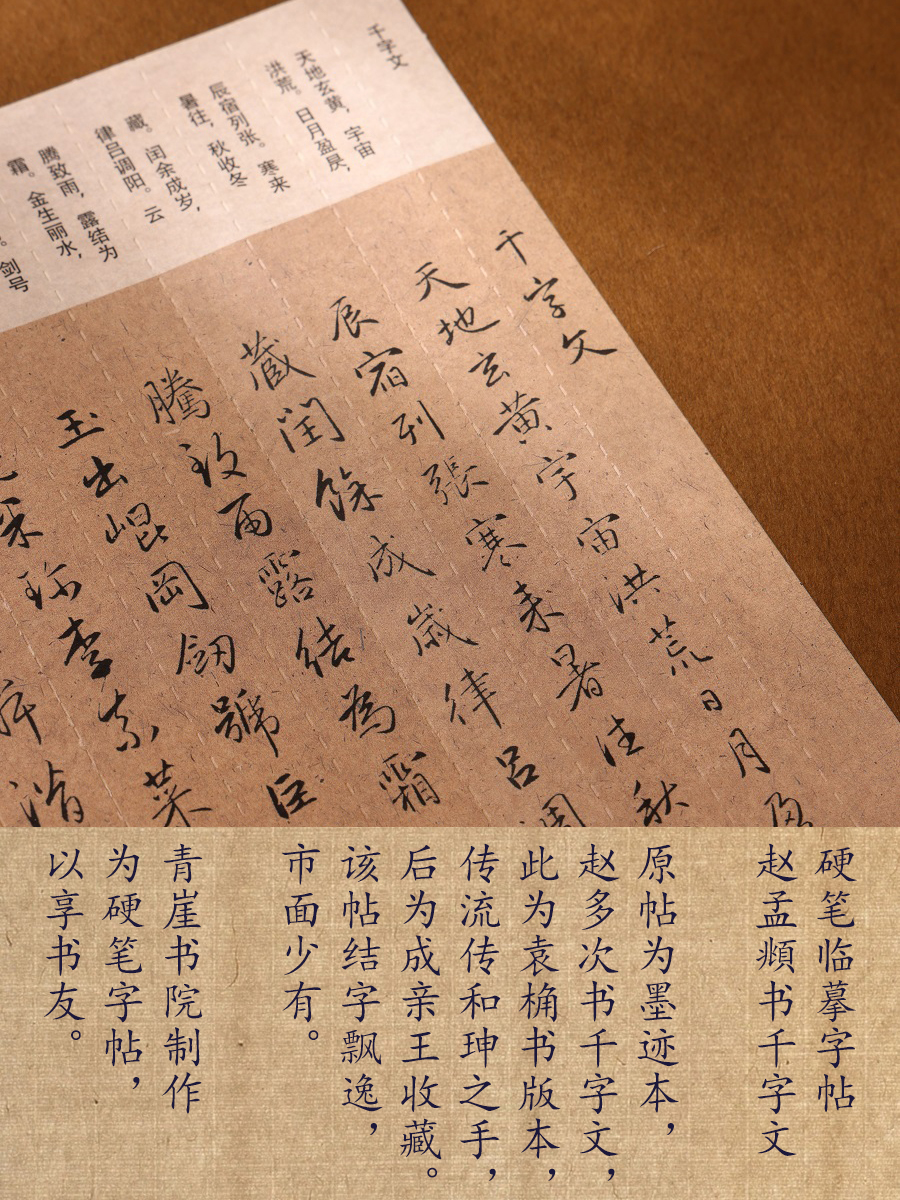 千字文
天地玄黄，宇宙
洪荒。日月盈昃，
辰宿列张。寒来
暑往，秋收冬
藏。闰余成岁，
律吕调阳。云
腾致雨，露结为
霜。金生丽水，
剑号
千字文
天地玄黄宇宙洪荒日月盈
辰宿列張寒来暑往秋
藏閏餘成歲律吕調
騰致雨露結為霜
玉出崐岡劒號巨
果珎李柰菜
潛
硬笔临摹字帖
赵孟頫书千字文
原帖为墨迹本，
赵多次书千字文，
此为袁桷书版本，
传流传和珅之手，
后为成亲王收藏。
该帖结字飘逸，
市面少有。
青崖书院制作
为硬笔字帖，
以享书友。